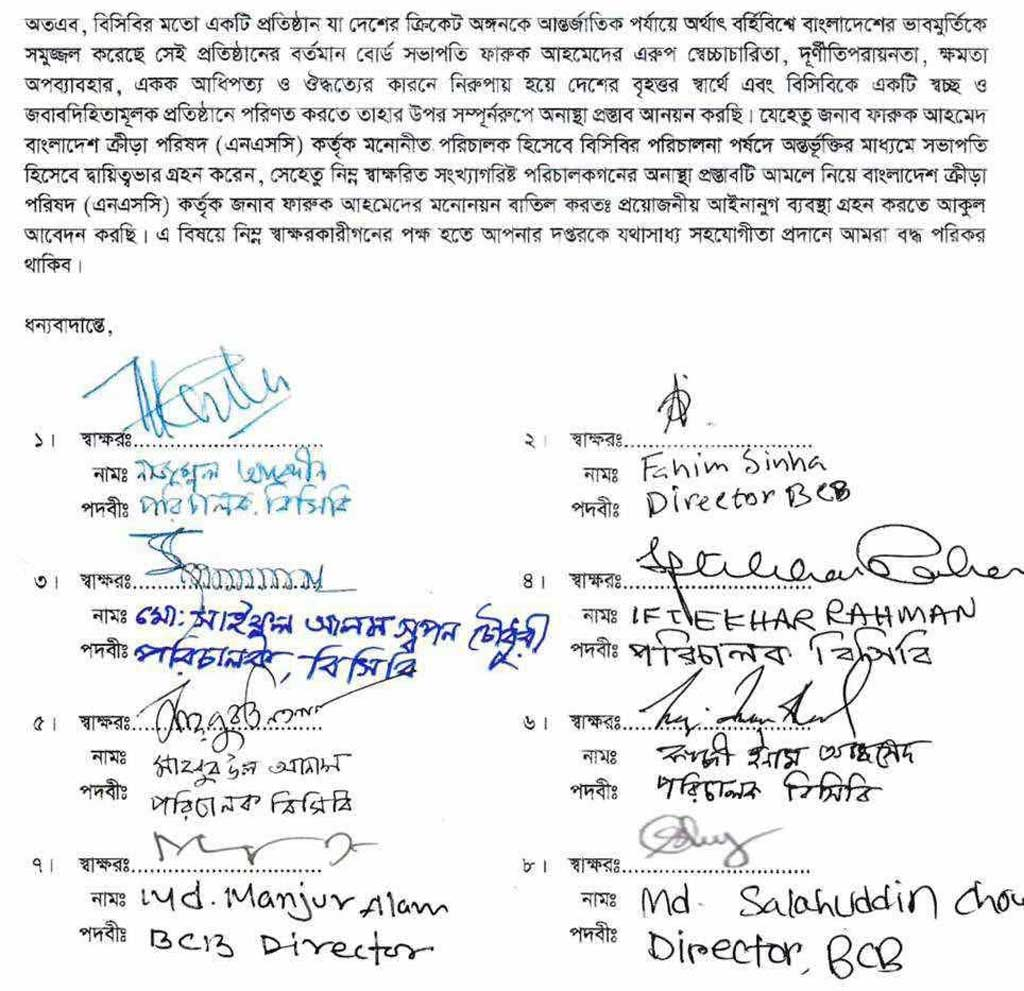 অতএব, বিসিবির মতো একটি প্রতিষ্ঠান যা দেশের ক্রিকেট অঙ্গনকে আন্তর্জাতিক পর্যায়ে অর্থাৎ বর্হিবিশ্বে বাংলাদেশের ভাবমুর্তিকে
সমুজ্জল করেছে সেই প্রতিষ্ঠানের বর্তমান বোর্ড সভাপতি ফারুক আহমেদের এরুপ স্বেচ্চাচারিতা, দূর্ণীতিপরায়নতা, ক্ষমতা
অপব্যাবহার, একক আধিপত্য ও ঔদ্ধত্যের কারনে নিরুপায় হয়ে দেশের বৃহত্তর স্বার্থে এবং বিসিবিকে একটি স্বচ্ছ ও
জবাবদিহিতামূলক প্রতিষ্ঠানে পরিণত করতে তাহার উপর সম্পূর্নরুপে অনাস্থা প্রস্তাব আনয়ন করছি। যেহেতু জনাব ফারুক আহমেদ
বাংলাদেশ ক্রীড়া পরিষদ (এনএসসি) কর্তৃক মনোনীত পরিচালক হিসেবে বিসিবির পরিচালনা পর্ষদে অন্তর্ভূক্তির মাধ্যমে সভাপতি
হিসেবে দ্বায়িত্বভার গ্রহন করেন, সেহেতু নিম্ন স্বাক্ষরিত সংখ্যাগরিষ্ট পরিচালকগনের অনাস্থা প্রস্তাবটি আমলে নিয়ে বাংলাদেশ ক্রীড়া
পরিষদ (এনএসসি) কর্তৃক জনাব ফারুক আহমেদের মনোনয়ন বাতিল করতঃ প্রয়োজনীয় আইনানুগ ব্যবস্থা গ্রহন করতে আকুল
আবেদন করছি। এ বিষয়ে নিম্ন স্বাক্ষরকারীগনের পক্ষ হতে আপনার দপ্তরকে যথাসাধ্য সহযোগীতা প্রদানে আমরা বদ্ধ পরিকর
থাকিব।
ধন্যবাদান্তে,
১। স্বাক্ষরঃ
নামঃ
পদবীঃ পরিচালক, বিসিবি
২। স্বাক্ষরঃ
নামঃ Fahim Sinha
পদবীঃ Director BCB
৩। স্বাক্ষরঃ
নামঃ মো: সাইফুল আলম স্বপন চৌধুরী
পদবীঃ পরিচালক, বিসিবি
৪। স্বাক্ষরঃ
নামঃ IFTEKHAR RAHMAN
পদবীঃ পরিচালক বিসিবি
৫। স্বাক্ষরঃ
নামঃ
পদবীঃ পরিচালক বিসিবি
৬। স্বাক্ষরঃ
নামঃ কাজী ইনাম আহমেদ
পদবীঃ পরিচালক বিসিবি
৭। স্বাক্ষরঃ
নামঃ Md. Manjur Alam
পদবীঃ BCB Director
৮। স্বাক্ষরঃ
নামঃ Md. Salahuddin Chow
পদবীঃ Director, BCB